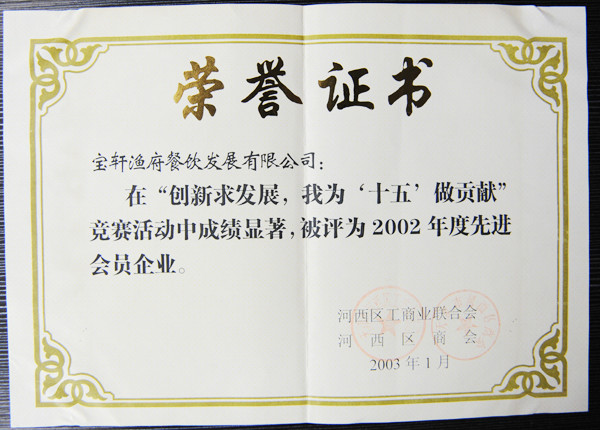 荣誉证书
宝轩渔府餐饮发展有限公司：
在“创新求发展，我为‘十五’做贡献”
竞赛活动中成绩显著，被评为2002年度先进
会员企业。
河西区工商业联合会
河西区商会
2003年1月